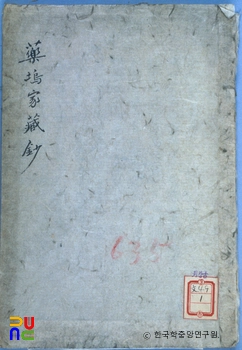 藥塢家藏鈔
635
1
© 한국학중앙연구원